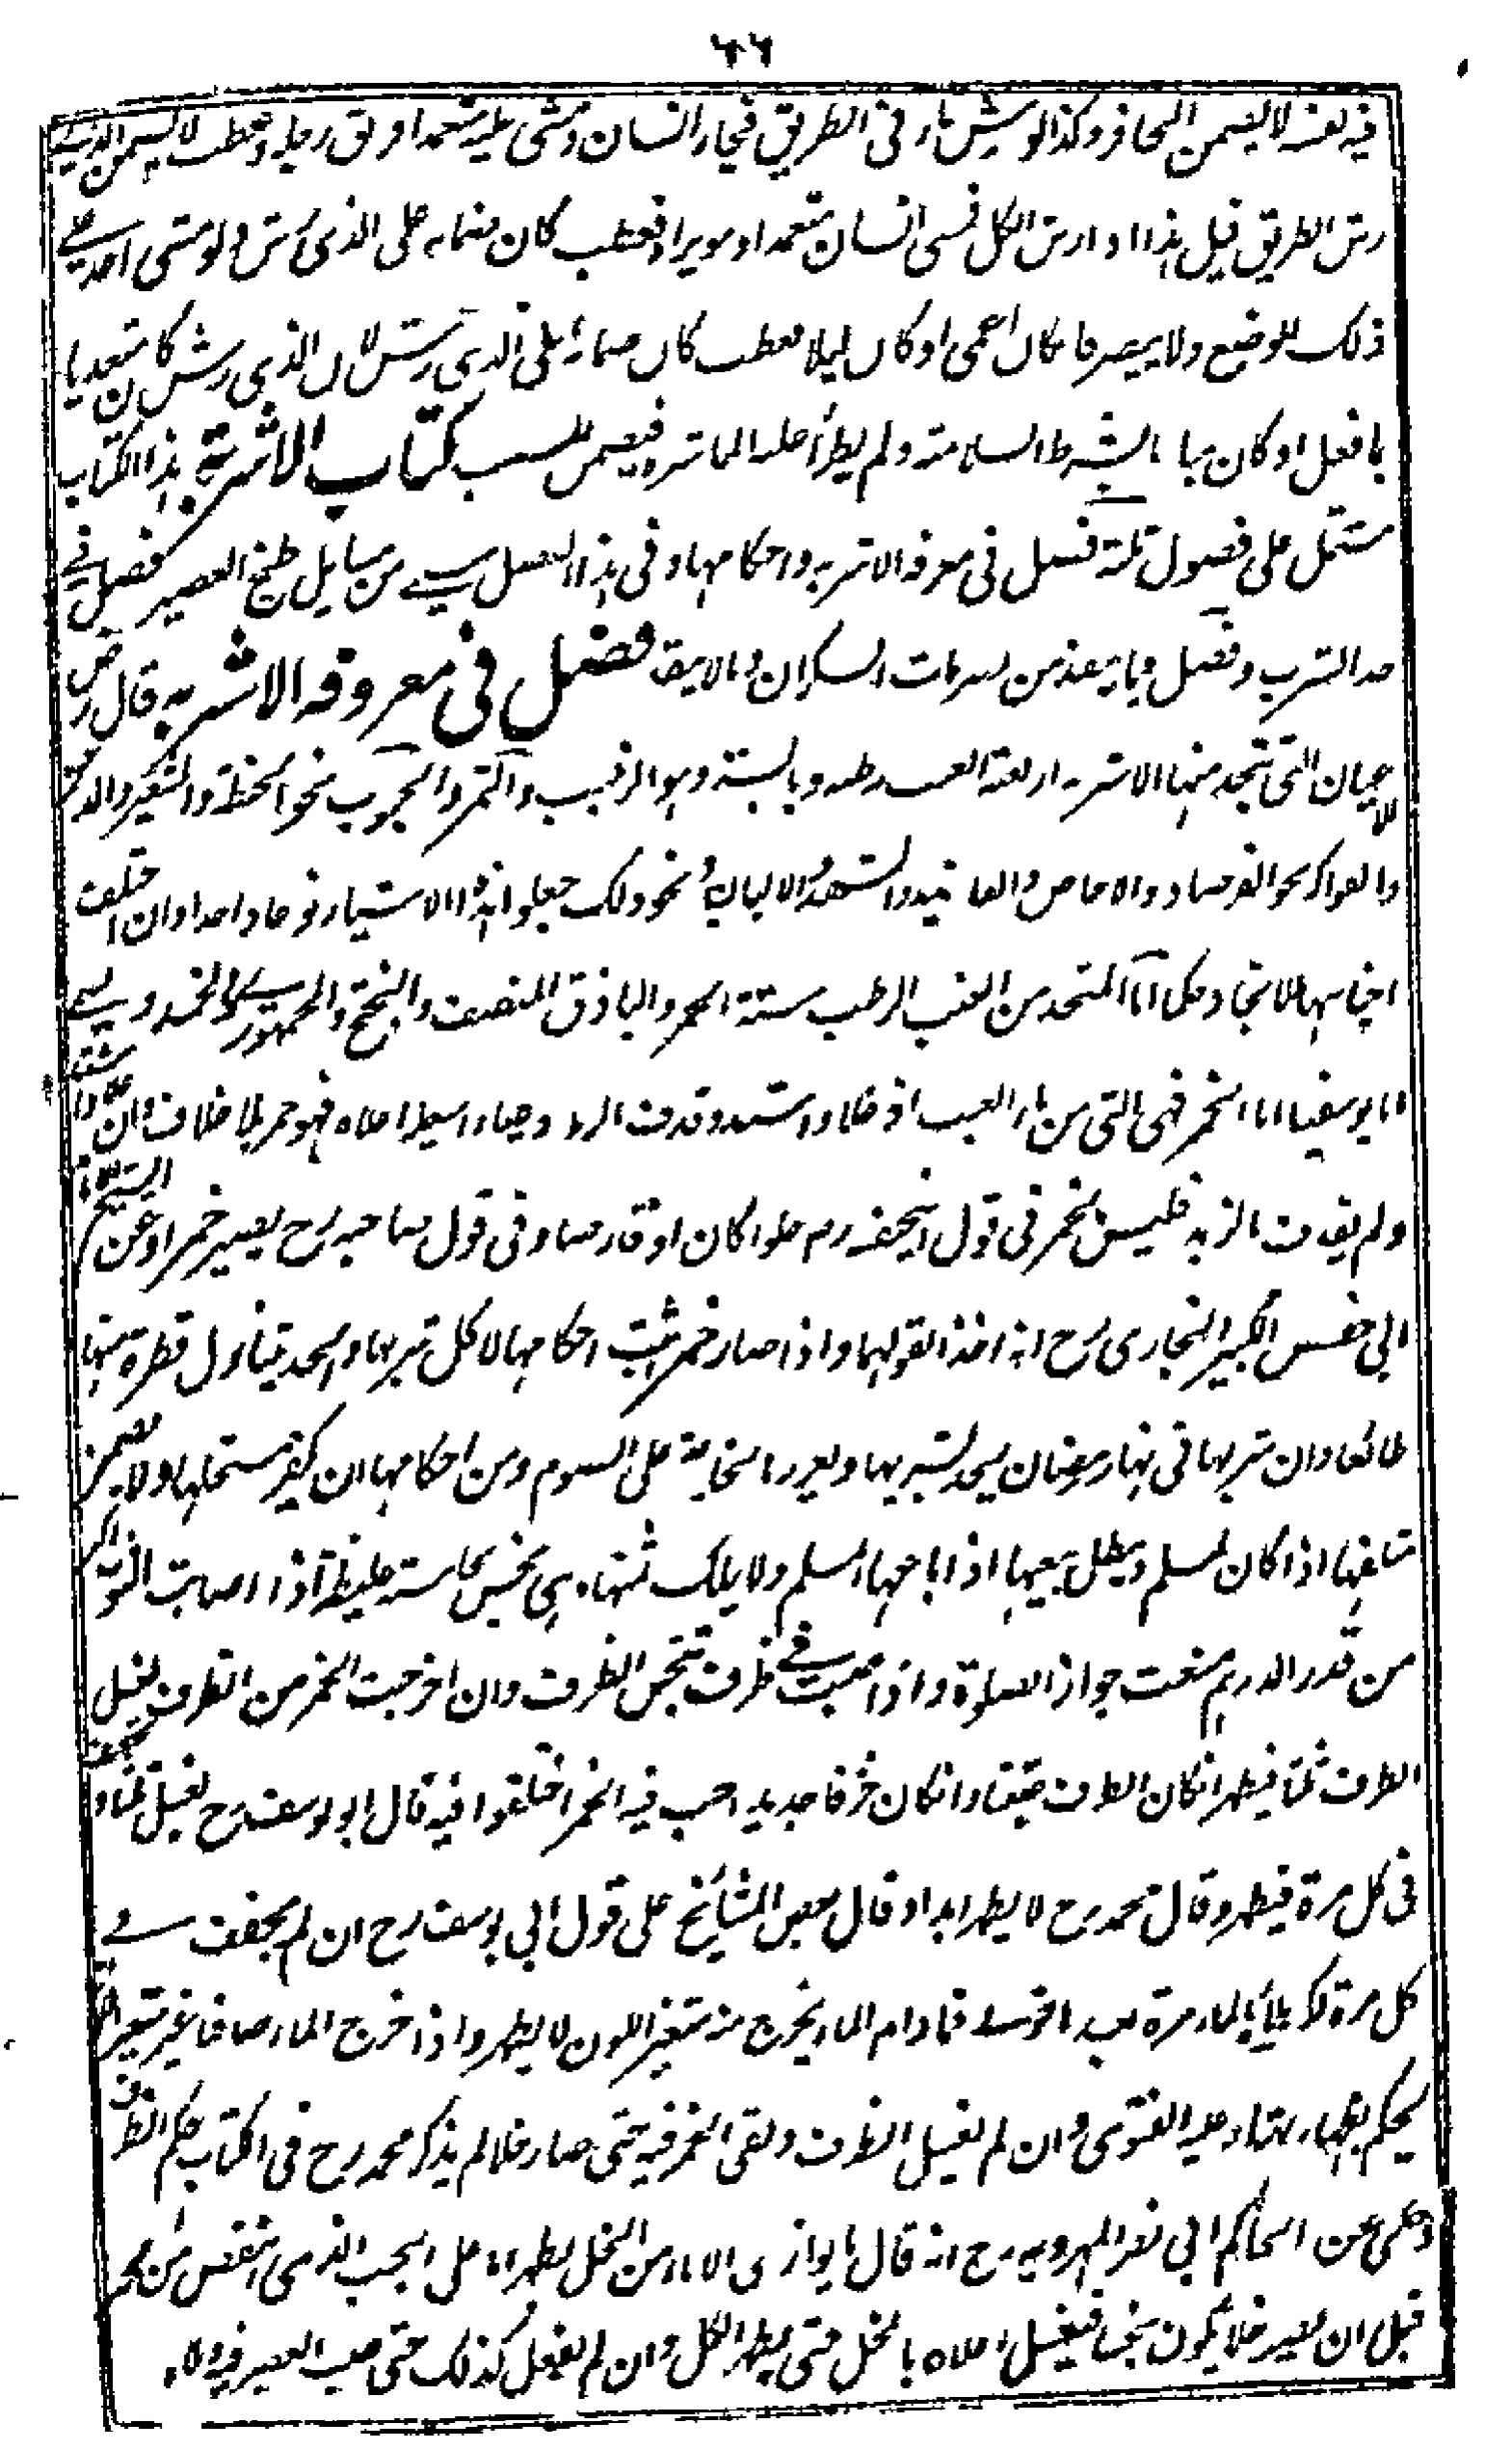 ٦٦
فيه نفسه لا يضمن الحافر وكذا لو رش ماء فى الطريق فجاء انسان ومشى عليه متعمدا وزلق رجله وعطب لا يضمن الذى
رش الطريق قيل هذا اذا رش الكل فمشى انسان متعمدا وهو يراه فعطب كان ضمانه على الذى رش ولو مشى احد على
ذلك الموضع ولا يبصرها كان اعمى او كان ليلا فعطب كان ضمانه على الذى رش لان الذى رش كان متعديا
بما فعل او كان مباحا بشرط السلامة ولم يطرأ عليه المباشرة فيضمن المسبب كتاب الاشربة هذا الكتاب
مشتمل على فصول ثلثة فصل فى معرفة الاشربة واحكامها وفى هذا الفصل شىء من مسايل طبخ العصير وفصل فى
حد الشرب وفصل فيما ينفذ من تصرفات السكران وما لا ينفذ فصل فى معرفة الاشربة قال رض
الاعيان التى تتخذ منها الاشربة اربعة العنب رطبه ويابسه وهو الزبيب والتمر والحبوب نحو الحنطة والشعير والدخن
والفواكه نحو الفرصاد والاجاص والفانيذ والشهد والالبان ونحو ذلك جعلوا هذه الاشياء نوعا واحدا وان اختلف
اجناسها لاتحاد حكمها اما المتخذ من العنب الرطب ستة الخمر والباذق والمنصف والبختج والجمهورى والحميدى ويسمى
ابو يوسفيا اما الخمر فهى التى من ماء العنب اذا غلا واشتد وقذف بالزبد وصار اسفله اعلاه فهو خمر بلا خلاف وان غلا واشتد
ولم يقذف بالزبد فليس بخمر فى قول ابيحنيفة رح حلوا كان او قارصا وفى قول صاحبيه رح يصير خمرا وعن الشيخ الامام
ابى حفص الكبير البخارى رح انه اخذ بقولهما واذا صار خمرا ثبت احكامها لا يحل شربها ويحد بتناول قطرة منها
طائعا وان شربها فى نهار رمضان يحد لشربها ويعزر بالجناية على الصوم ومن احكامها ان يكفر مستحلها ولا يضمن
متلفها اذا كان لمسلم ويبطل بيعها اذا باعها المسلم ولا يملك ثمنها وهى نجس نجاسة غليظة اذا اصابت الثوب اكثر
من قدر الدرهم منعت جواز الصلوة واذا صبت فى ظرف تنجس الظرف وان اخرجت الخمر من الظرف يغسل
الظرف ثلثا فيطهر ان كان الظرف عتيقا وان كان خزفا جديدا صب فيه الخمر اختلفوا فيه قال ابو يوسف رح يغسل ثلثا ويجفف
فى كل مرة فيطهر وقال محمد رح لا يطهر ابدا وقال بعض المشائخ على قول ابى يوسف رح ان لم يجفف فى
كل مرة لكن يملأ بالماء مرة بعد اخرى فما دام الماء يخرج منه متغير اللون لا يطهر واذا خرج الماء صافيا غير متغير اللون
يحكم بطهارته وعليه الفتوى وان لم يغسل الظرف وبقى الخمر فيه حتى صار خلا لم يذكر محمد رح فى الكتاب حكم الظرف
وحكى عن الحاكم ابى نصر المهرويه رح انه قال ما يوازى الاناء من الخل يطهر اما على الحب الذى انتقص من الخمر
قبل ان يصير خلا يكون نجسا فيغسل اعلاه بالخل حتى يطهر الكل وان لم يفعل كذلك حتى صب العصير فيه ولا